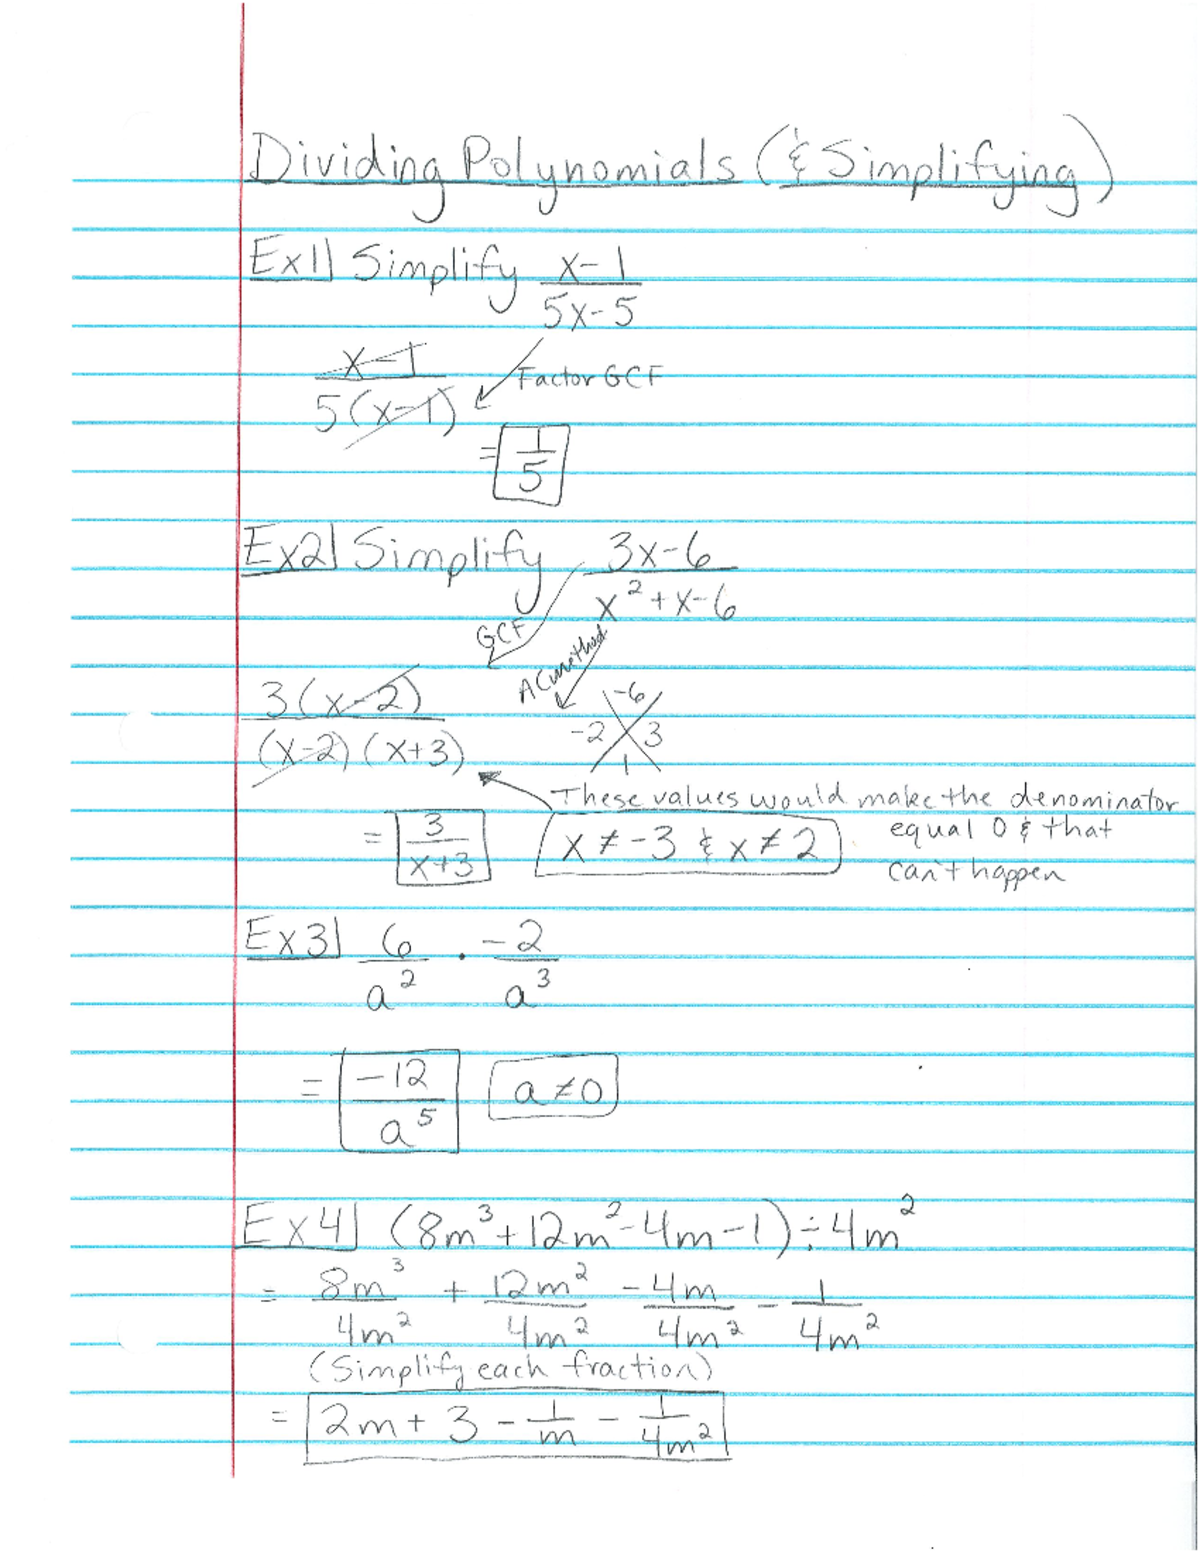 Dividing Polynomials (& Simplifying)
Ex1| Simplify (x-1)/(5x-5)
(x-1)/(5(x-1)) Factor GCF
= 1/5
Ex2| Simplify (3x-6)/(x²+x-6)
GCF
AC method
(3(x-2))/((x-2)(x+3)) -6 -2 3 1
These values would make the denominator
= 3/(x+3) x ≠ -3 & x ≠ 2 equal 0 & that
can't happen
Ex3| 6/a² · -2/a³
= -12/a⁵ a≠0
Ex4| (8m³+12m²-4m-1)÷4m²
= 8m³/4m² + 12m²/4m² - 4m/4m² - 1/4m²
(Simplify each fraction)
= 2m + 3 - 1/m - 1/4m²